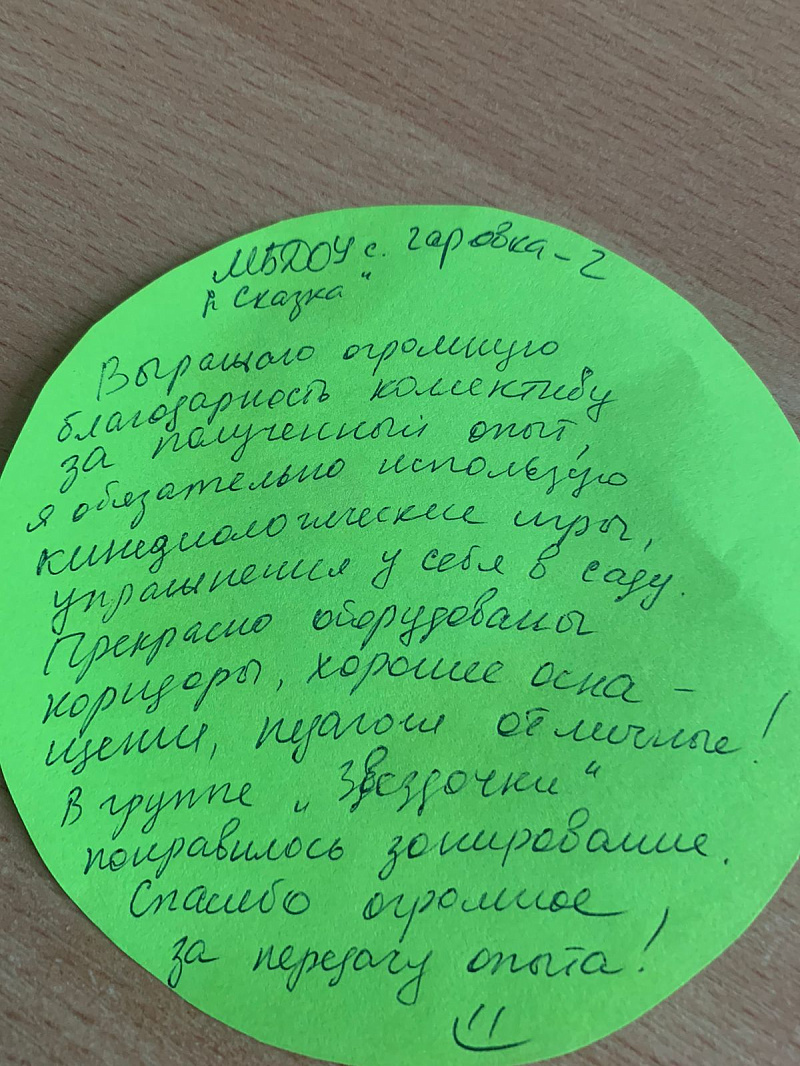 МБДОУ с. Гаровка-2
"Сказка"
Выражаю огромную
благодарность коллективу
за полученный опыт,
я обязательно использую
кинезиологические игры,
упражнения у себя в саду.
Прекрасно оборудованы
коридоры, хорошее осна-
щение, педагоги отличные!
В группе „Звездочки"
понравилось зонирование.
Спасибо огромное,
за передачу опыта!